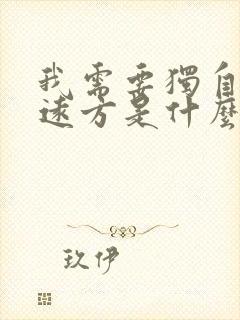 我需要獨自
遠方是什麼
玖伊